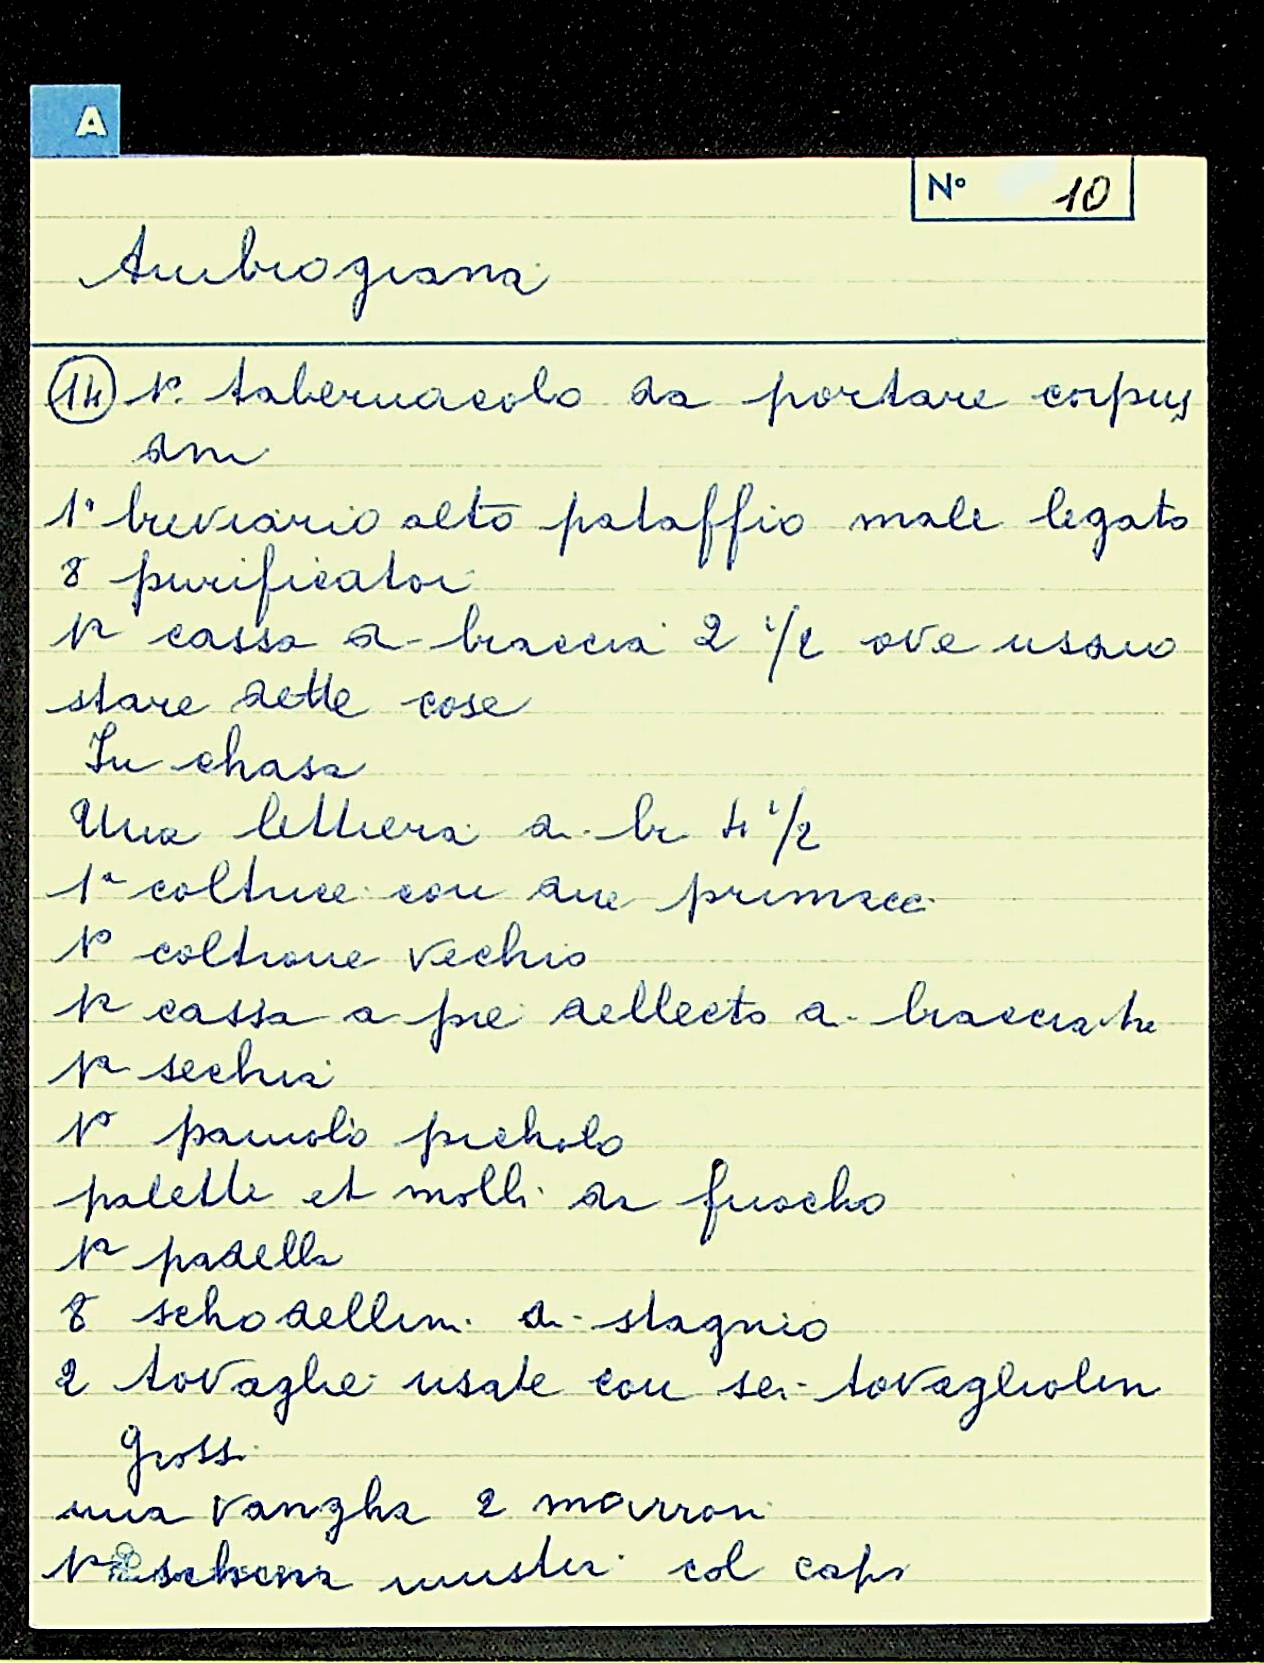 A
N° 10
Ambrogiana
(14) 1°. tabernacolo da portare corpus
dni
1° breviario alto pataffio male legato
8 purificatoi
1a cassa di braccia 2 1/2 ove usano
stare dette cose
In chasa
Una lettiera di br 4 1/2
1a coltrice con due primacci
1° coltrone vechio
1a cassa a piè dellecto di braccia
1a sechia
1° paiuolo picholo
palette et molli da fuocho
1a padella
8 schodellini di stagnio
2 tovaglie usate con sei tovagliolini
grossi
una vangha 2 marroni
1a col capo